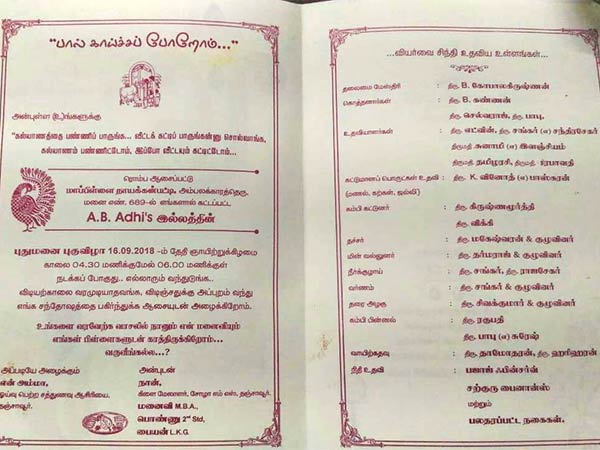 "பால் காய்ச்சப் போறோம்..."
அன்புள்ள (உ)ங்களுக்கு
"கல்யாணத்தை பண்ணிப் பாருங்க... வீட்டக் கட்டிப் பாருங்கன்னு சொல்வாங்க,
கல்யாணம் பண்ணிட்டோம், இப்போ வீட்டயும் கட்டிட்டோம்...
ரொம்ப ஆசைப்பட்டு
மாப்பிள்ளை நாயக்கன்பட்டி, அம்பலக்காரத்தெரு,
மனை எண். 689-ல் எங்களால் கட்டப்பட்ட
A.B. Adhi's இல்லத்தின்
புதுமனை புகுவிழா 16.09.2018 -ம் தேதி ஞாயிற்றுக்கிழமை
காலை 04.30 மணிக்குமேல் 06.00 மணிக்குள்
நடக்கப் போகுது.. எல்லாரும் வந்துடுங்க..
விடியற்காலை வரமுடியாதவங்க, விடிஞ்சதுக்கு அப்புறம் வந்து
எங்க சந்தோஷத்தை பகிர்ந்துக்க ஆசையுடன் அழைக்கிறோம்.
உங்களை வரவேற்க வாசலில் நானும் என் மனைவியும்
எங்கள் பிள்ளைகளுடன் காத்திருக்கிறோம்...
வருவீங்கல்ல...?
அப்படியே அழைக்கும்
என் அம்மா,
ஓய்வு பெற்ற சத்துணவு ஆசிரியை,
தஞ்சாவூர்.
அன்புடன்
நான்,
கிளை மேலாளர், சோழா எம் எஸ், தஞ்சாவூர்.
மனைவி M.B.A.,
பொண்ணு 2nd Std,
பையன் L.K.G.
...வியர்வை சிந்தி உதவிய உள்ளங்கள்...
தலைமை மேஸ்திரி : திரு. B. கோபாலகிருஷ்ணன்
கொத்தனார்கள் : திரு. B. கண்ணன்
திரு. செல்வராஜ், திரு. பாபு,
உதவியாளர்கள் : திரு. எட்வின், திரு. சங்கர் (எ) சந்திரசேகர்
திருமதி சுனாமி (எ) இளஞ்சியம்
திருமதி. தமிழரசி, திருமதி. பிரபாவதி
கட்டுமானப் பொருட்கள் உதவி : திரு. K. வினோத் (எ) பாஸ்கரன்
(மணல், கற்கள், ஜல்லி)
கம்பி கட்டுனர் : திரு. கிருஷ்ணமூர்த்தி
திரு. விக்கி
தச்சர் : திரு. மகேஷ்வரன் & குழுவினர்
மின் வல்லுனர் : திரு. தர்மராஜ் & குழுவினர்
நீர்க்குழாய் : திரு. சங்கர், திரு. ராஜசேகர்
வர்ணம் : திரு. சங்கர் & குழுவினர்
தரை அழகு : திரு. சிவக்குமார் & குழுவினர்
கம்பி பின்னல் : திரு. ரகுபதி
திரு. பாபு (எ) சுரேஷ்
வாயிற்கதவு : திரு. தாமோதரன், திரு. ஹரிஹரன்
நிதி உதவி : பஜாஜ் ஃபின்சர்வ்
சற்குரு பைனான்ஸ்
மற்றும்
பலதரப்பட்ட நகைகள்.